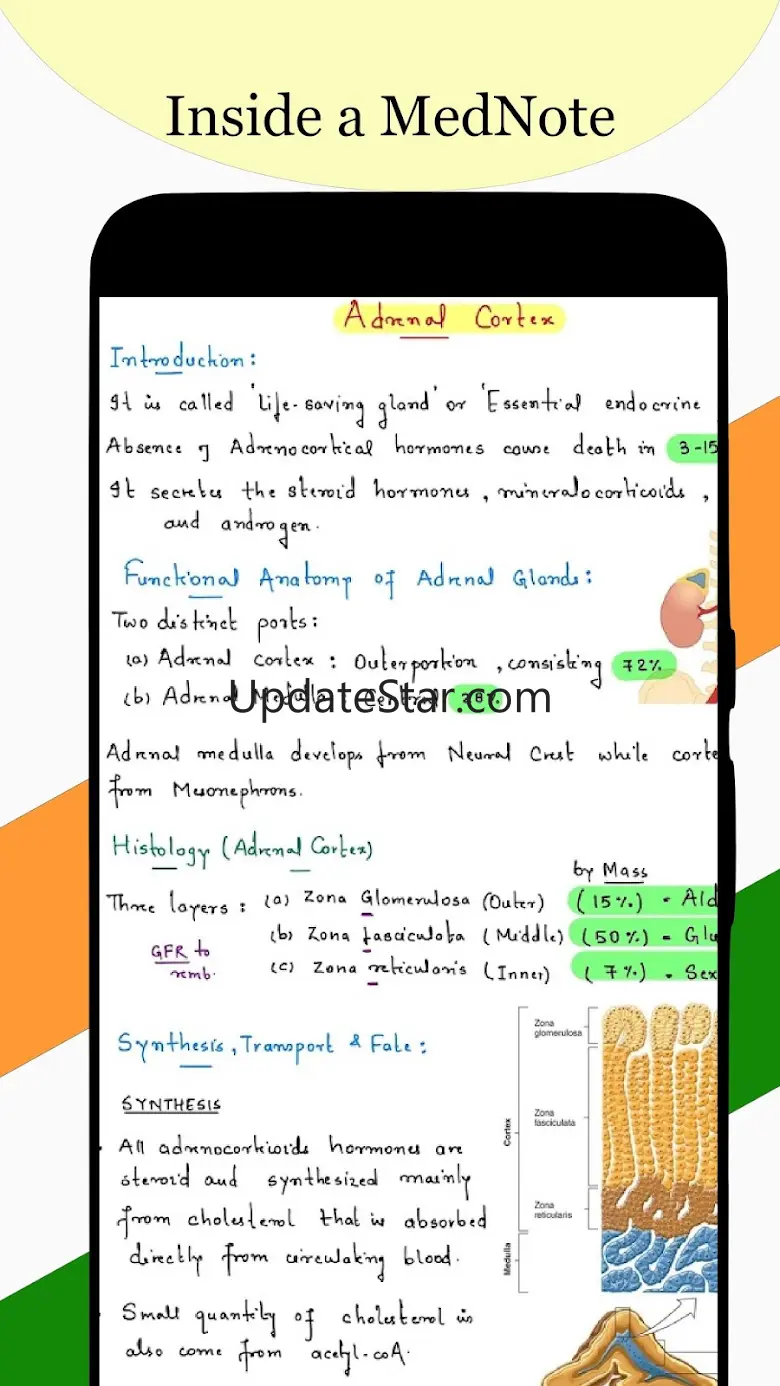 Inside a MedNote
Adrenal Cortex
Introduction:
It is called 'Life-saving gland' or 'Essential endocrine
Absence of Adrenocortical hormones cause death in 3-15
It secretes the steroid hormones, mineralocorticoids,
and androgen.
Functional Anatomy of Adrenal Glands:
Two distinct parts:
(a) Adrenal cortex: Outer portion, consisting 72%
(b) Adrenal Medulla: Central 28%
UpdateStar.com
Adrenal medulla develops from Neural Crest while corte
from Mesonephrons.
Histology (Adrenal Cortex)
by Mass
Three layers: (a) Zona Glomerulosa (Outer) (15%) - Ald
(b) Zona fasciculata (Middle) (50%) - Glu
(c) Zona reticularis (Inner) (7%) - Sex
GFR to
remb.
Synthesis, Transport & Fate:
SYNTHESIS
All adrenocorticoids hormones are
steroid and synthesized mainly
from cholesterol that is absorbed
directly from circulating blood.
Small quantity of cholesterol is
also come from acetyl-coA.
Zona
glomerulosa
Zona
fasciculata
Zona
reticularis
Cortex
Medulla